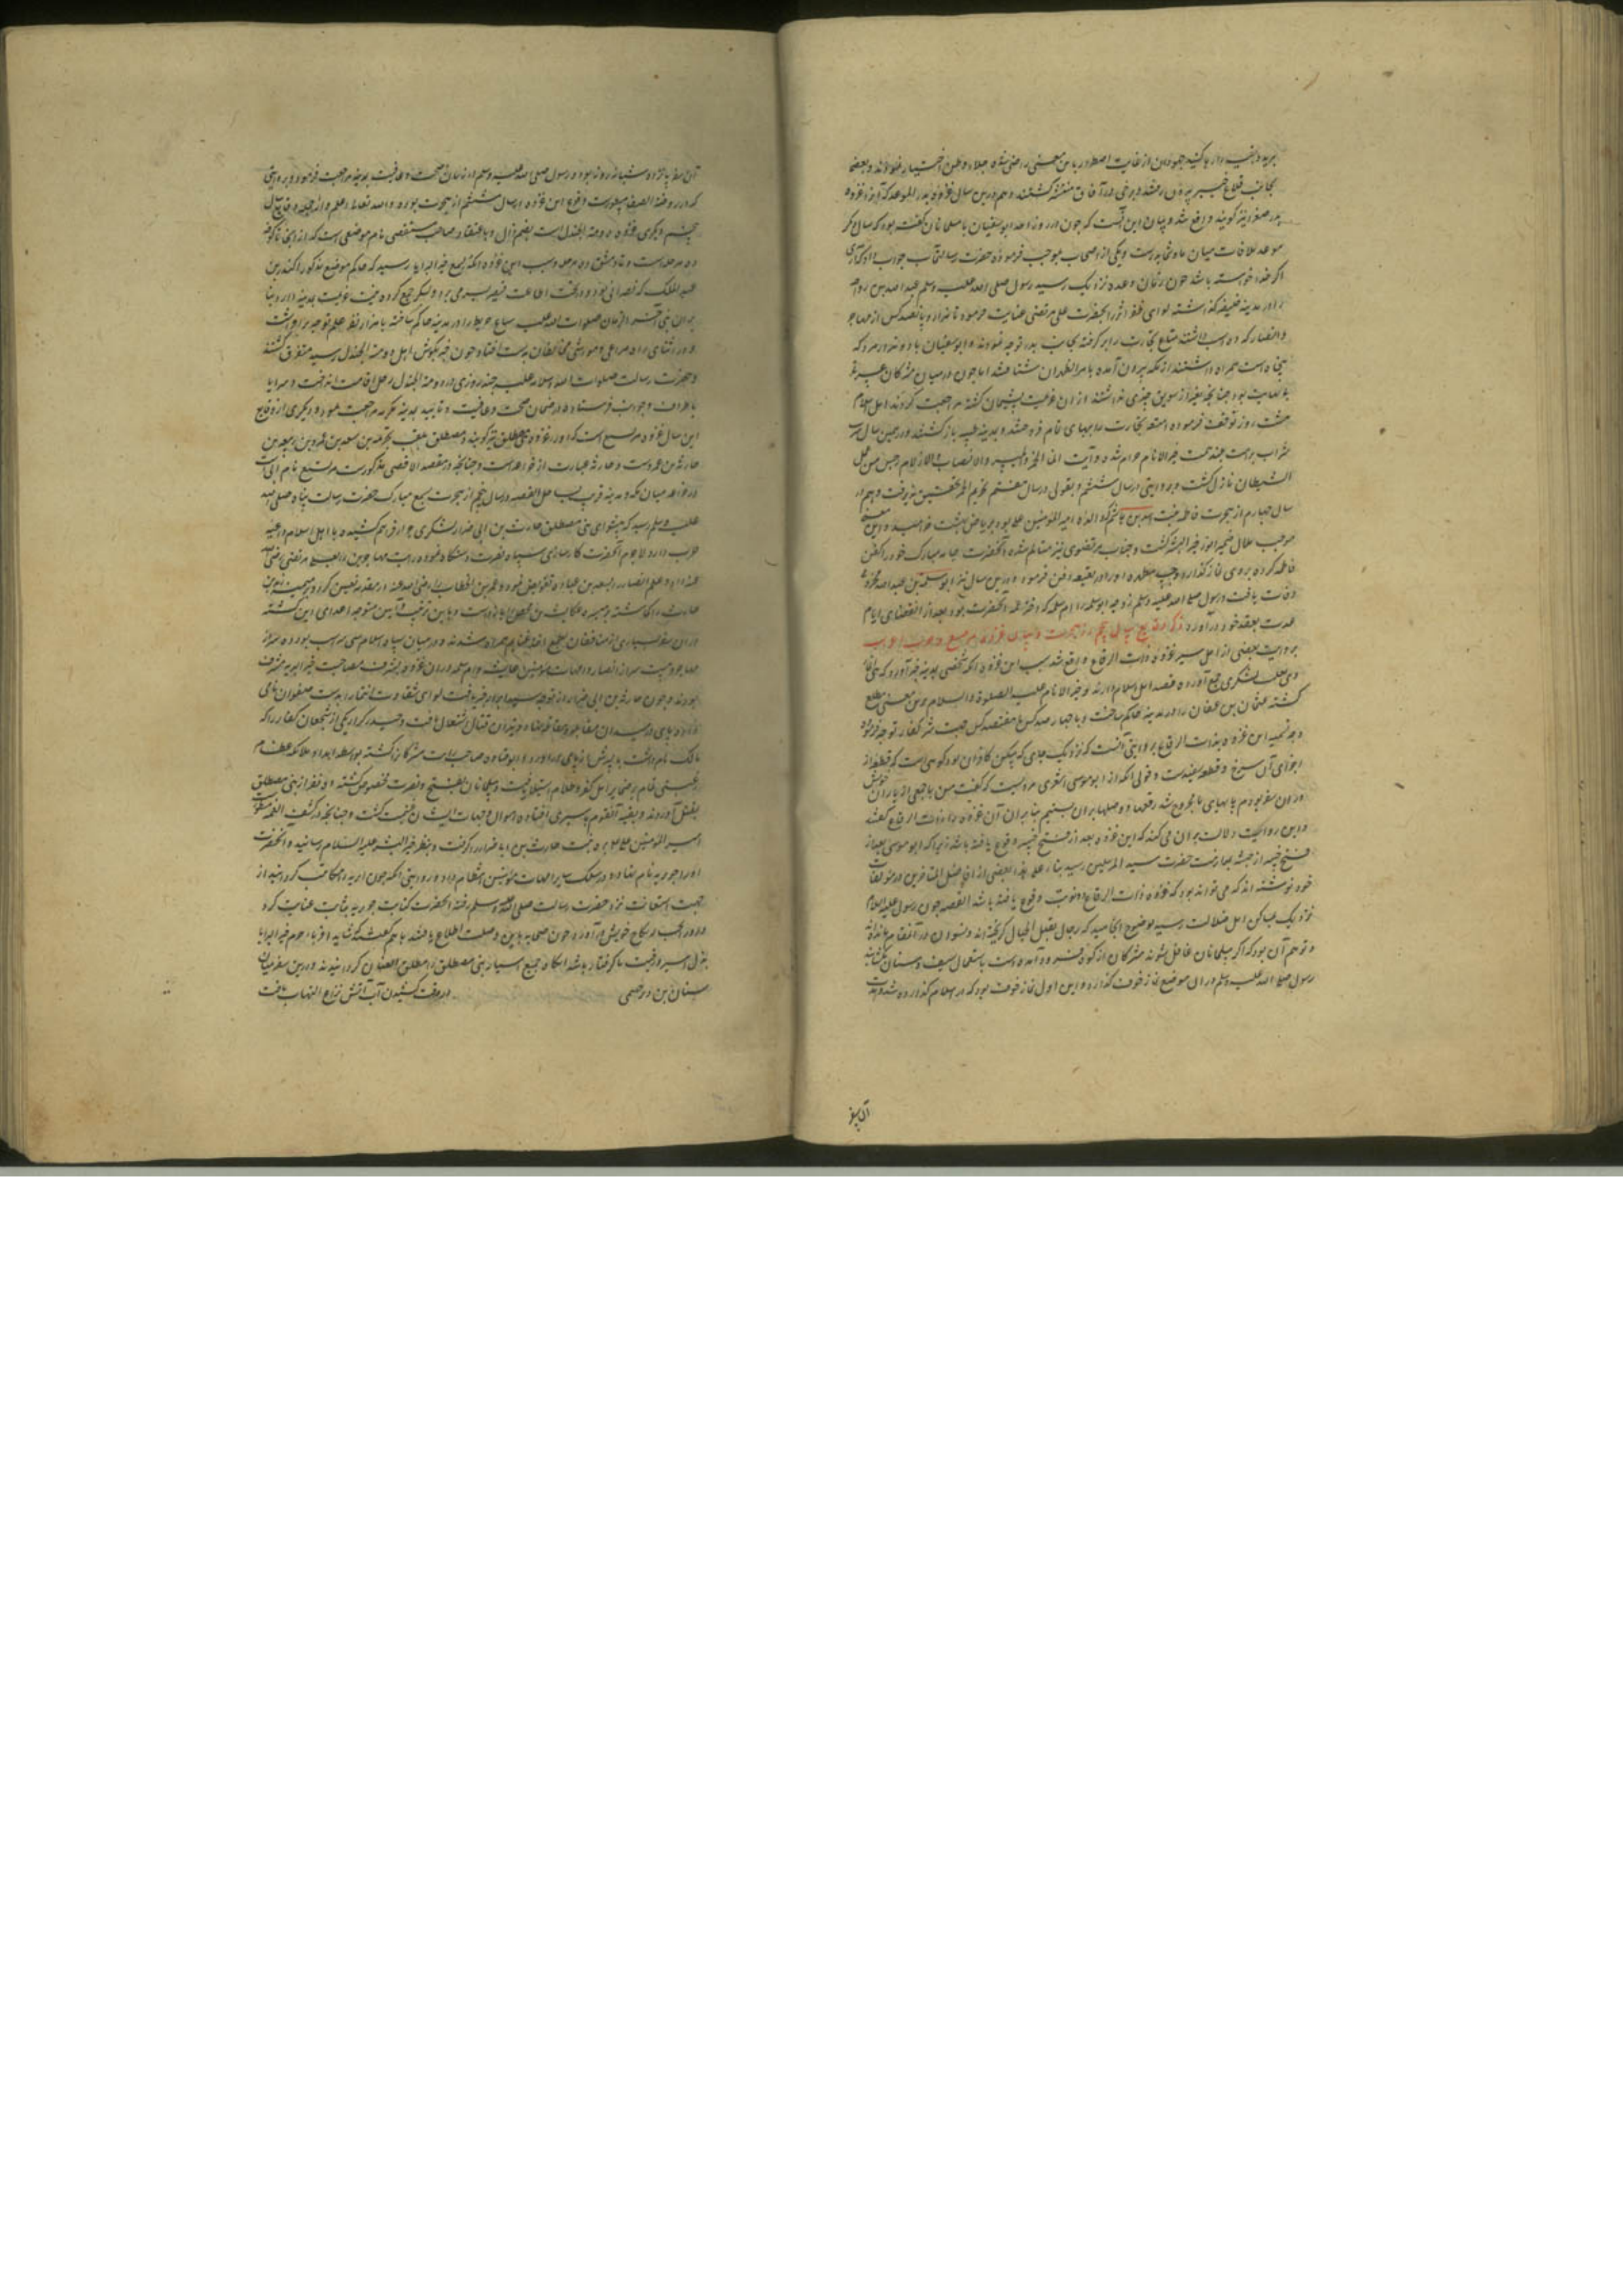 برید و بقیه را رها کنید جهودان از غایت اضطرار باین معنی راضی شده جلاء وطن اختیار نمودند و بعضی
بجانب قلاع خیبر بیرون رفتند و برخی در آفاق منتشر کشتند و هم درین سال غزوه بدر الموعد که آنرا غزوه
بدر صغری نیز کویند واقع شد و بیان این آنست که چون در روز احد ابوسفیان با مسلمانان کفته بود که سال دیکر
موعد ملاقات میان ما و شما بدرست و یکی از اصحاب بموجب فرموده حضرت رسالتمآب جواب داد که آری
اکر خدا خواسته باشد چون زمان وعده نزدیک رسید رسول صلی الله علیه وسلم عبدالله بن رواحه
را در مدینه خلیفه کذاشته لوای ظفر اثر را بحضرت علی مرتضی عنایت فرموده با هزار و پانصد کس از مهاجر
و انصار که ده اسب داشتند متاع تجارت را بر کرفته بجانب بدر توجه نمودند و ابوسفیان با دو هزار مرد که
پنجاه اسب همراه داشتند از مکه بیرون آمده تا مرالظهران شتافتند اما چون در میان مشرکان عسرت
بغایت بود چنانچه بغیر از سویق چیزی نداشتند از ان عزیمت پشیمان کشته مراجعت کردند اهل اسلام
هشت روز توقف فرموده امتعه تجارت را ببهای تمام فروختند و بمدینه طیبه باز کشتند و در همین سال شرب
شراب بر امت خیرالانام حرام شد و آیت انما الخمر والمیسر والانصاب والازلام رجس من عمل
الشیطان نازل کشت و بروایتی در سال ششم و بقولی در سال هشتم تحریم الخمر تحقیق پذیرفت و هم در
سال چهارم از هجرت فاطمه بنت اسد بن هاشم که والده امیرالمؤمنین علی بود بریاض بهشت خرامید و این معنی
موجب ملال ضمیر انور خیرالبشر کشت و جناب مرتضوی نیز متالم شده آنحضرت جامه مبارک خود را کفن
فاطمه کرده بر وی نماز کذارد و او را در بقیع دفن فرمود و درین سال نیز ابوسلمه بن عبدالاسد مخزومی
وفات یافت و رسول صلی الله علیه وسلم زوجه ابوسلمه را ام سلمه که دختر عمه آنحضرت بود بعد از انقضای ایام
عدت بعقد خود درآورد ذکر وقایع سال پنجم از هجرت و بیان غزوه مریسیع و حرب احزاب
بروایت بعضی از اهل سیر غزوه ذات الرقاع واقع شد سبب این غزوه آنکه شخصی بمدینه خبر آورد که بنی انمار
و بنی ثعلبه لشکری جمع آورده قصد اهل اسلام دارند و خیرالانام علیه الصلوة والسلام برین معنی مطلع
کشته عثمان بن عفان را در مدینه حاکم ساخت و با چهار صد کس یا هفتصد کس جهت شر کفار توجه فرمود
وجه تسمیه این غزوه بذات الرقاع بروایتی آنست که نزدیک جایی که مسکن کافران بود کوهی است که قطعه از
اجزای آن سرخ و قطعه سفیدست و قولی آنکه از ابوموسی اشعری مرویست که کفت من با جمعی از یاران خویش
در ان سفر بودم پایهای ما مجروح شد رقعها و وصلها بران بستیم بنا بران آن غزوه را ذات الرقاع کفتند
و این روایت دلالت بران می کند که این غزوه بعد از فتح خیبر وقوع یافته باشد زیرا که ابوموسی بعد از
فتح خیبر از حبشه بملازمت حضرت سید المرسلین رسید بناء علی هذا بعضی از افاضل المتاخرین در مؤلفات
خود نوشته اند که می تواند بود که غزوه ذات الرقاع دو نوبت وقوع یافته باشد القصه چون رسول علیه السلام
نزدیک مساکن اهل ضلالت رسید بوضوح انجامید که رجال بقلل الجبال کریخته اند و نسوان در آنمقام مانده
و توهم آن بود که اکر مسلمانان غافل شوند مشرکان از کوه فرود آمده دست باستعمال سیف و سنان بکشایند
رسول صلی الله علیه وسلم در ان موضع نماز خوف کذارد و این اول نماز خوف بود که در اسلام کذارده شد و مدت
آن سفر
آن سفر پانزده شبانه روز بود و رسول صلی الله علیه وسلم در ضمان صحت و عافیت بمدینه مراجعت فرمود و بروایتی
که در روضة الصفا مسطورست وقوع این غزوه در سال ششم از هجرت بوده والله تعالی اعلم و از جمله وقایع سال
پنجم دیکری غزوه دومة الجندل است بضم دال و باعتقاد صاحب مستقصی نام موضعی است که از انجا تا کوفه
ده مرحله است و تا دمشق ده مرحله و سبب این غزوه آنکه بسمع خیرالبرایا رسید که حاکم موضع مذکور اکیدر بن
عبدالملک که نصرانی بود و در تحت اطاعت قیصر بسر می برد لشکر جمع کرده نیت عزیمت مدینه دارد بنا
بران نبی آخرالزمان صلوات الله علیه سباع بن عرفطه را در مدینه حاکم ساخته با هزار نفر علم توجه برافراشت
و در اثنای راه مراعی و مواشی مخالفان بدست افتاد چون خبر بکوش اهل دومة الجندل رسید متفرق کشتند
و حضرت رسالت صلوات الله وسلامه علیه چند روزی در دومة الجندل رحل اقامت انداخت و سرایا
باطراف و جوانب فرستاد و در ضمان صحت و عافیت و تایید بمدینه مکرمه مراجعت نمود و دیکری از وقایع
این سال غزوه مریسیع است که آنرا غزوه بنی مصطلق نیز کویند و مصطلق لقب جذیمه بن سعد بن عمرو بن ربیعه بن
حارثه بن عمروست و حارثه عبارت از خزاعه است و چنانچه در مقصد الاقصی مذکورست مریسیع نام آبی است
از خزاعه میان مکه و مدینه قریب بساحل القصه در سال پنجم از هجرت بسمع مبارک حضرت رسالت پناه صلی الله
علیه وسلم رسید که پیشوای بنی مصطلق حارث بن ابی ضرار لشکری جرار فراهم کشیده با اهل اسلام داعیه
حرب دارد لاجرم آنحضرت کارسازی سپاه نصرت دستکاه نموده رایت مهاجرین را بعلی مرتضی رضی الله
عنه داد و علم انصار را بسعد بن عباده تفویض نمود و عمر بن الخطاب را رضی الله عنه در مقدمه تعیین کرد و میمنه بزید بن
حارثه را کماشته و میسره عکاشه بن محصن را باز داشت و باین ترتیب و آیین متوجه اعدای دین کشته
در ان سفر بسیاری از منافقان بطمع اخذ غنایم همراه شدند و در میان سپاه اسلام سی اسب بود ده سر از
مهاجر و بیست سر از انصار و امهات مؤمنین عایشه و ام سلمه در ان غزوه بشرف مصاحبت خیرالبریه مشرف
بودند و چون حارث بن ابی ضرار از توجه سپاه جرار خبر یافت لوای شقاوت انتما را بدست صفوان نامی
داده پای در میدان مقابله و مقاتله نهاد و نیران قتال اشتعال یافت و حیدر کرار یکی از شجعان کفار را که
مالک نام داشت با پسرش از پای درآورد و ابوقتاده صاحب رایت مشرکان را کشته بواسطه امداد ملائکه عظام
هزیمتی تمام بر اهل کفر و ظلام استیلا یافت و مسلمانان بفتح و نصرت مخصوص کشته ده نفر از بنی مصطلق
بقتل آوردند و بقیه آنقوم باسیری افتاده اموال و جهات ایشان غنیمت کشت و چنانچه در کشف الغمه مسطور است
امیرالمؤمنین علی بره بنت حارث بن ابی ضرار را کرفت و بنظر خیرالبشر علیه السلام رسانید و آنحضرت
او را جویریه نام نهاده در سلک سایر امهات مؤمنین انتظام داد و روایتی آنکه چون او را مکاتب کردانیدند از
جهت استعانت نزد حضرت رسالت صلی الله علیه وسلم رفته آنحضرت کتابت جویریه بثابت عنایت کرد
و او را بحباله نکاح خویش درآورد و چون صحابه باین وصلت اطلاع یافتند با هم کفتند که نشاید اقرباء حرم خیرالبرایا
بذل اسیر و رقیت ما کرفتار باشد انکاه جمیع اسیاء بنی مصطلق را مطلق العنان کردانیدند و درین سفر میان
سنان بن وبر جهنی در وقت کشیدن آب آتش نزاع التهاب یافت